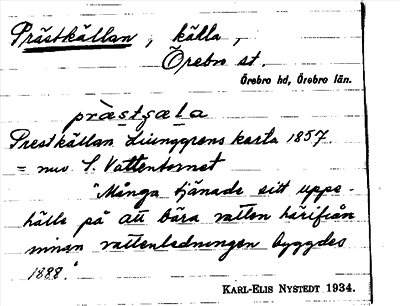 Prästkällan, källa,
Örebro st.
Örebro hd, Örebro län.
prà̀stçäla
Prestkällan Liunggrens karta 1857.
= nuv. S. Vattentornet
"Många tjänade sitt uppe-
hälle på att bära vatten härifrån
innan vattenledningen byggdes
1888."
KARL-ELIS NYSTEDT 1934.